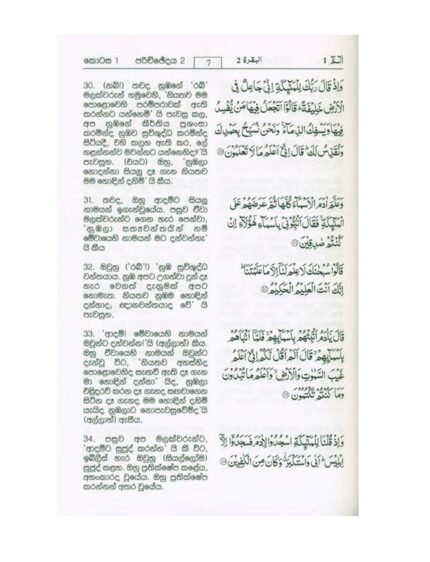 කොටස 1 පරිච්ඡේදය 2 7 البقرة 2 الٓمّٓ 1
30. (නබි!) තවද නුඹගේ 'රබ්'
මලක්වරුන් හමුවෙහි, 'නියතව මම
පොළොවෙහි පරම්පරාවක් ඇති
කරන්නට යන්නෙමි' යි පැවසූ කල,
අප නුඹගේ කීර්තිය ප්‍රශංසා
කරමින්ද නුඹව සුවිශුද්ධ කරමින්ද
සිටියදී, එහි කලහ ඇති කර, ලේ
හළන්නන්ව මවන්නට යන්නෙහිද?'යි
පැවසූහ. (එයට) ඔහු, 'නුඹලා
නොදන්නා සියලු දෑ ගැන නියතව
මම හොඳින් දනිමි' යි කීය.
وَإِذْ قَالَ رَبُّكَ لِلْمَلَٰٓئِكَةِ إِنِّي جَاعِلٌ فِي
الْأَرْضِ خَلِيفَةً ۖ قَالُوٓا أَتَجْعَلُ فِيهَا مَن يُفْسِدُ
فِيهَا وَيَسْفِكُ الدِّمَآءَ وَنَحْنُ نُسَبِّحُ بِحَمْدِكَ
وَنُقَدِّسُ لَكَ ۖ قَالَ إِنِّيٓ أَعْلَمُ مَا لَا تَعْلَمُونَ
31. තවද, ඔහු ආදම්ට සියලු
නාමයන් ඉගැන්වූයේය. පසුව ඒවා
මලක්වරුන්ට ගෙන හැර පෙන්වා,
'නුඹලා සත්‍යවන්තයින් නම්
මේවායෙහි නාමයන් මට දන්වන්න'
යි කීය
وَعَلَّمَ ءَادَمَ الْأَسْمَآءَ كُلَّهَا ثُمَّ عَرَضَهُمْ عَلَى
الْمَلَٰٓئِكَةِ فَقَالَ أَنۢبِـُٔونِي بِأَسْمَآءِ هَٰٓؤُلَآءِ إِن
كُنتُمْ صَٰدِقِينَ
32. ඔවුහු ('රබ්!') 'නුඹ සුවිශුද්ධ
වන්නාය. නුඹ අපට උගන්වා දුන් දෑ
හැර වෙනත් දැනුමක් අපට
නොමැත. නියතව නුඹම හොඳින්
දන්නාද; ඥානවන්තයාද වේ' යි
පැවසූහ.
قَالُوا سُبْحَٰنَكَ لَا عِلْمَ لَنَآ إِلَّا مَا عَلَّمْتَنَآ ۖ
إِنَّكَ أَنتَ الْعَلِيمُ الْحَكِيمُ
33. 'ආදම්! මේවායෙහි නාමයන්
ඔවුන්ට දන්වන්න'යි (අල්ලාහ්) කීය.
ඔහු ඒවායෙහි නාමයන් ඔවුන්ට
දැන්වූ විට, 'නියතව අහස්හිද
පොළොවෙහිද සැඟවී ඇති දෑ ගැන
මා හොඳින් දන්නා' යිද, නුඹලා
එළිදරව් කරන දෑ ගැනද සඟවාගෙන
සිටින දෑ ගැනද මම හොඳින් දනිමි
යැයිද නුඹලාට නොපැවසුවෙම්ද'යි
(අල්ලාහ්) ඇසීය.
قَالَ يَٰٓـَٔادَمُ أَنۢبِئْهُم بِأَسْمَآئِهِمْ ۖ فَلَمَّآ أَنۢبَأَهُم
بِأَسْمَآئِهِمْ قَالَ أَلَمْ أَقُل لَّكُمْ إِنِّيٓ أَعْلَمُ
غَيْبَ السَّمَٰوَٰتِ وَالْأَرْضِ وَأَعْلَمُ مَا تُبْدُونَ
وَمَا كُنتُمْ تَكْتُمُونَ
34. පසුව අප මලක්වරුන්ට,
'ආදම්ට සුජූද් කරන්න' යි කී විට,
ඉබ්ලීස් හැර ඔවුහු (සියල්ලෝම)
සුජූද් කළහ. ඔහු ප්‍රතික්ෂේප කළේය,
අහංකාරද වූයේය. ඔහු ප්‍රතික්ෂේප
කරන්නන් අතර වූයේය.
وَإِذْ قُلْنَا لِلْمَلَٰٓئِكَةِ اسْجُدُوا لِـَٔادَمَ فَسَجَدُوٓا إِلَّآ
إِبْلِيسَ أَبَىٰ وَاسْتَكْبَرَ وَكَانَ مِنَ الْكَٰفِرِينَ